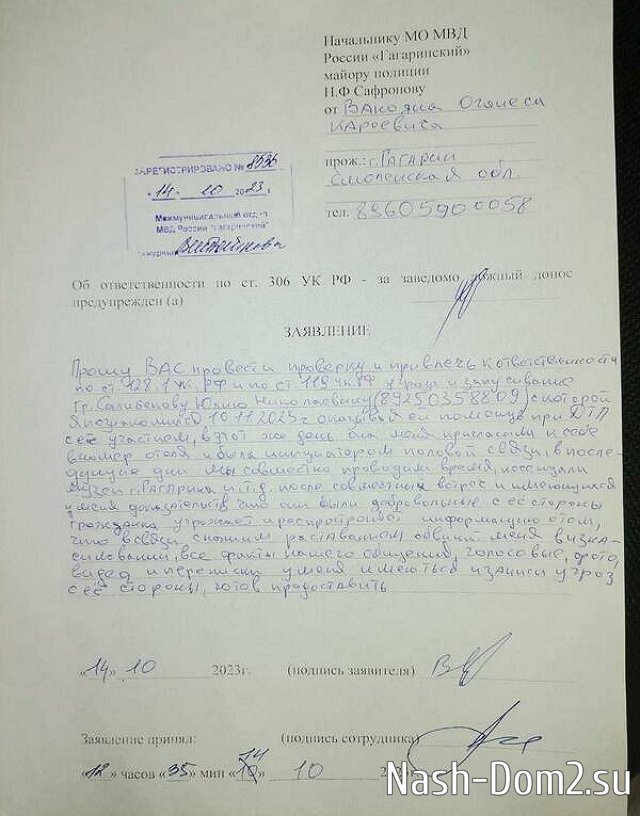 Начальнику МО МВД
России «Гагаринский»
майору полиции
Н.Ф Сафронову
от Вакояна Оганеса
Кареевича
прож.: г. Гагарин
Смоленская обл.
тел. 89605900058
ЗАРЕГИСТРИРОВАНО № 8536
«14» 10 2023 г.
Межмуниципальный отдел
МВД России "Гагаринский"
Об ответственности по ст. 306 УК РФ - за заведомо ложный донос
предупрежден (а)
ЗАЯВЛЕНИЕ
Прошу ВАС провести проверку и привлечь к ответственности
по ст. 128.1 УК РФ и по ст. 119 УК РФ угроза и запугивание
гр. Салибекову Юлию Николаевну (89250358809) с которой
я познакомился 10.11.2023г. оказывая ей помощь при ДТП
с её участием, в этот же день она меня пригласила к себе
в номер отеля и была инициатором половой связи, в после-
дующие дни мы совместно проводили время, посещали
музеи г. Гагарина и.т.д. после совместных встреч и имеющихся
у меня доказательств что они были добровольные с её стороны
Гражданка угрожает и распространяет информацию о том,
что в связи с нашим расставанием обвинит меня в изна-
силовании, все факты нашего общения, голосовые, фото,
видео и переписки у меня имеються и записи угроз
с её стороны, готов предоставить
«14» 10 2023г. (подпись заявителя)
Заявление принял: (подпись сотрудника)
«12» часов «35» мин «14» 10
Nash-Dom2.su